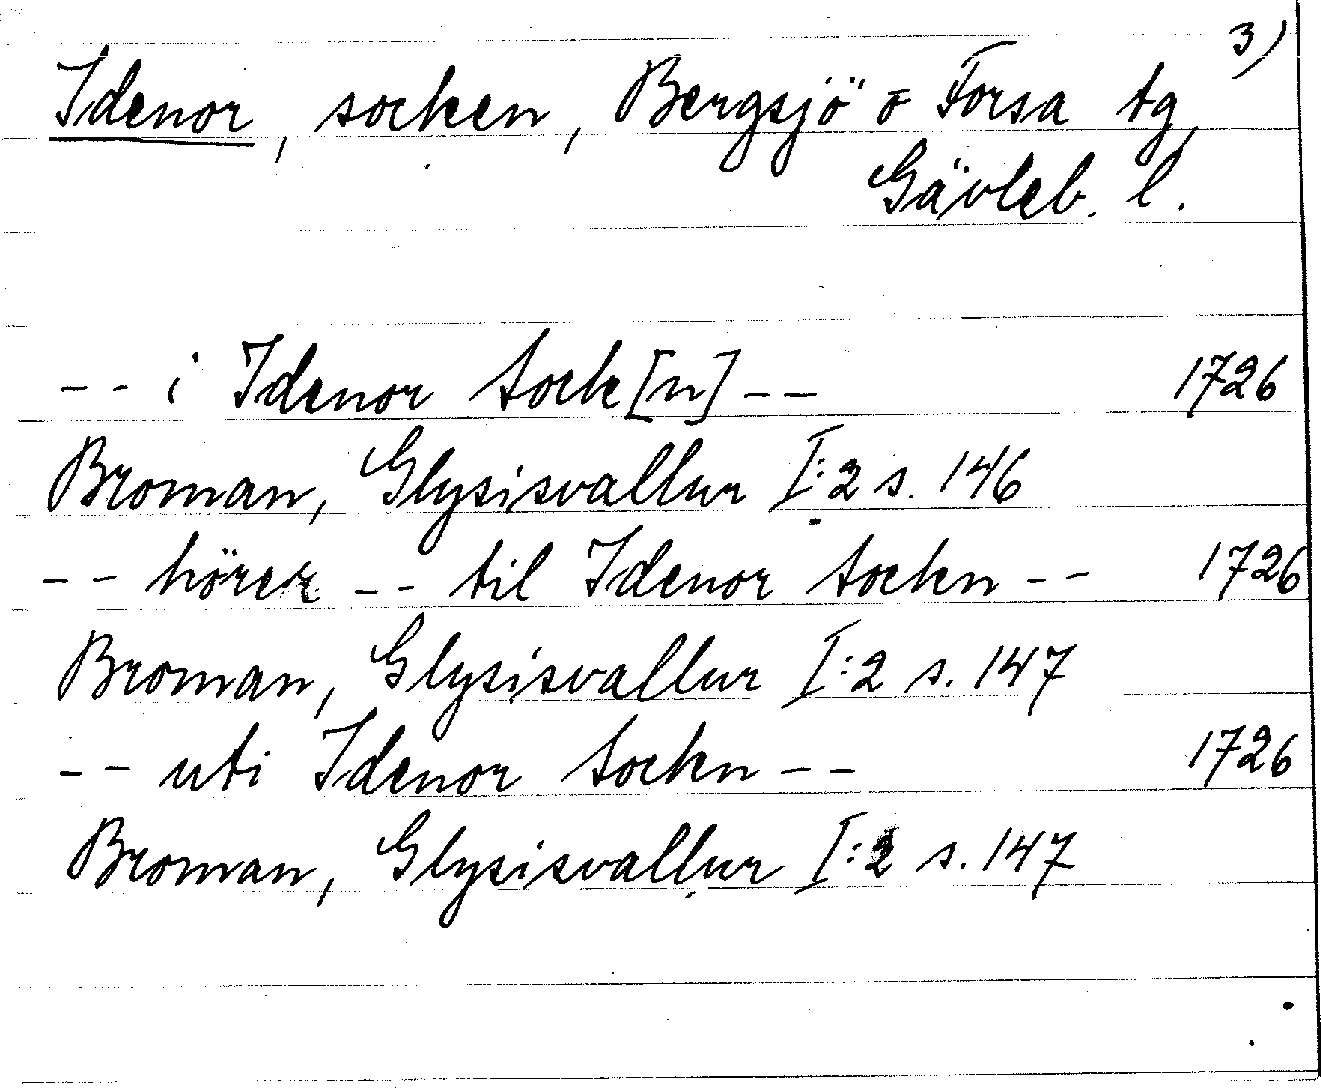 3)
Idenor, socken, Bergsjö o Forsa tg,
Gävleb. l.
-- i Idenor Sock[n] -- 1726
Broman, Glysisvallur I:2 s. 146
-- hörer -- til Idenor Sockn -- 1726
Broman, Glysisvallur I:2 s. 147
-- uti Idenor Sockn -- 1726
Broman, Glysisvallur I:2 s. 147